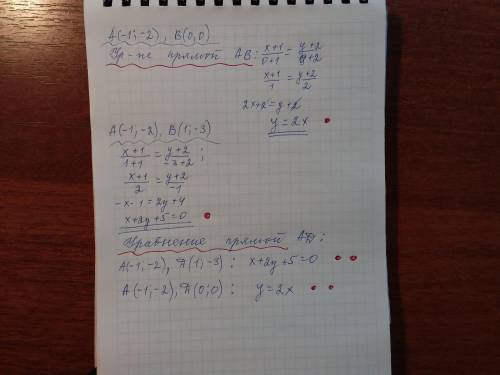 A(-1;-2), B(0;0)
Ур-не прямой AB: (x+1)/(0+1) = (y+2)/(0+2)
(x+1)/1 = (y+2)/2
2x+2=y+2
y=2x
A(-1;-2), B(1;-3)
(x+1)/(1+1) = (y+2)/(-3+2);
(x+1)/2 = (y+2)/-1
-x-1=2y+4
x+2y+5=0
Уравнение прямой AD:
A(-1;-2), D(1;-3): x+2y+5=0
A(-1;-2), D(0;0): y=2x